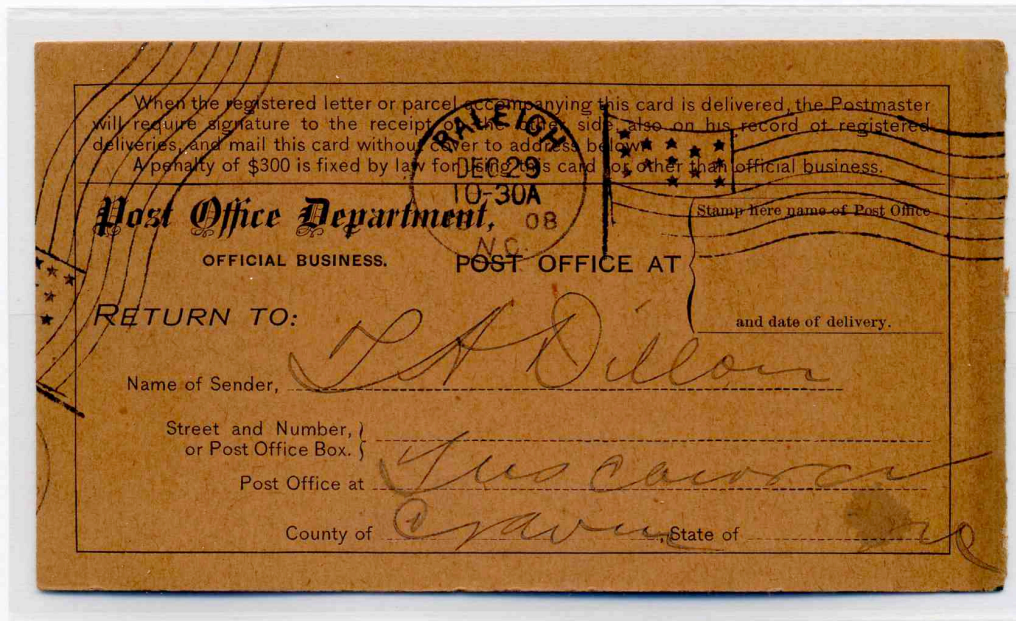 When the registered letter or parcel accompanying this card is delivered, the Postmaster
will require signature to the receipt on the other side, also on his record of registered
deliveries, and mail this card without cover to address below.
A penalty of $300 is fixed by law for using this card for other than official business.
RALEIGH
DEC 29
10-30A
08
N.C.
Post Office Department,
OFFICIAL BUSINESS.
POST OFFICE AT
Stamp here name of Post Office
and date of delivery.
RETURN TO:
Name of Sender, T A Dillon
Street and Number,
or Post Office Box.
Post Office at Tuscarora
County of Craven, State of NC